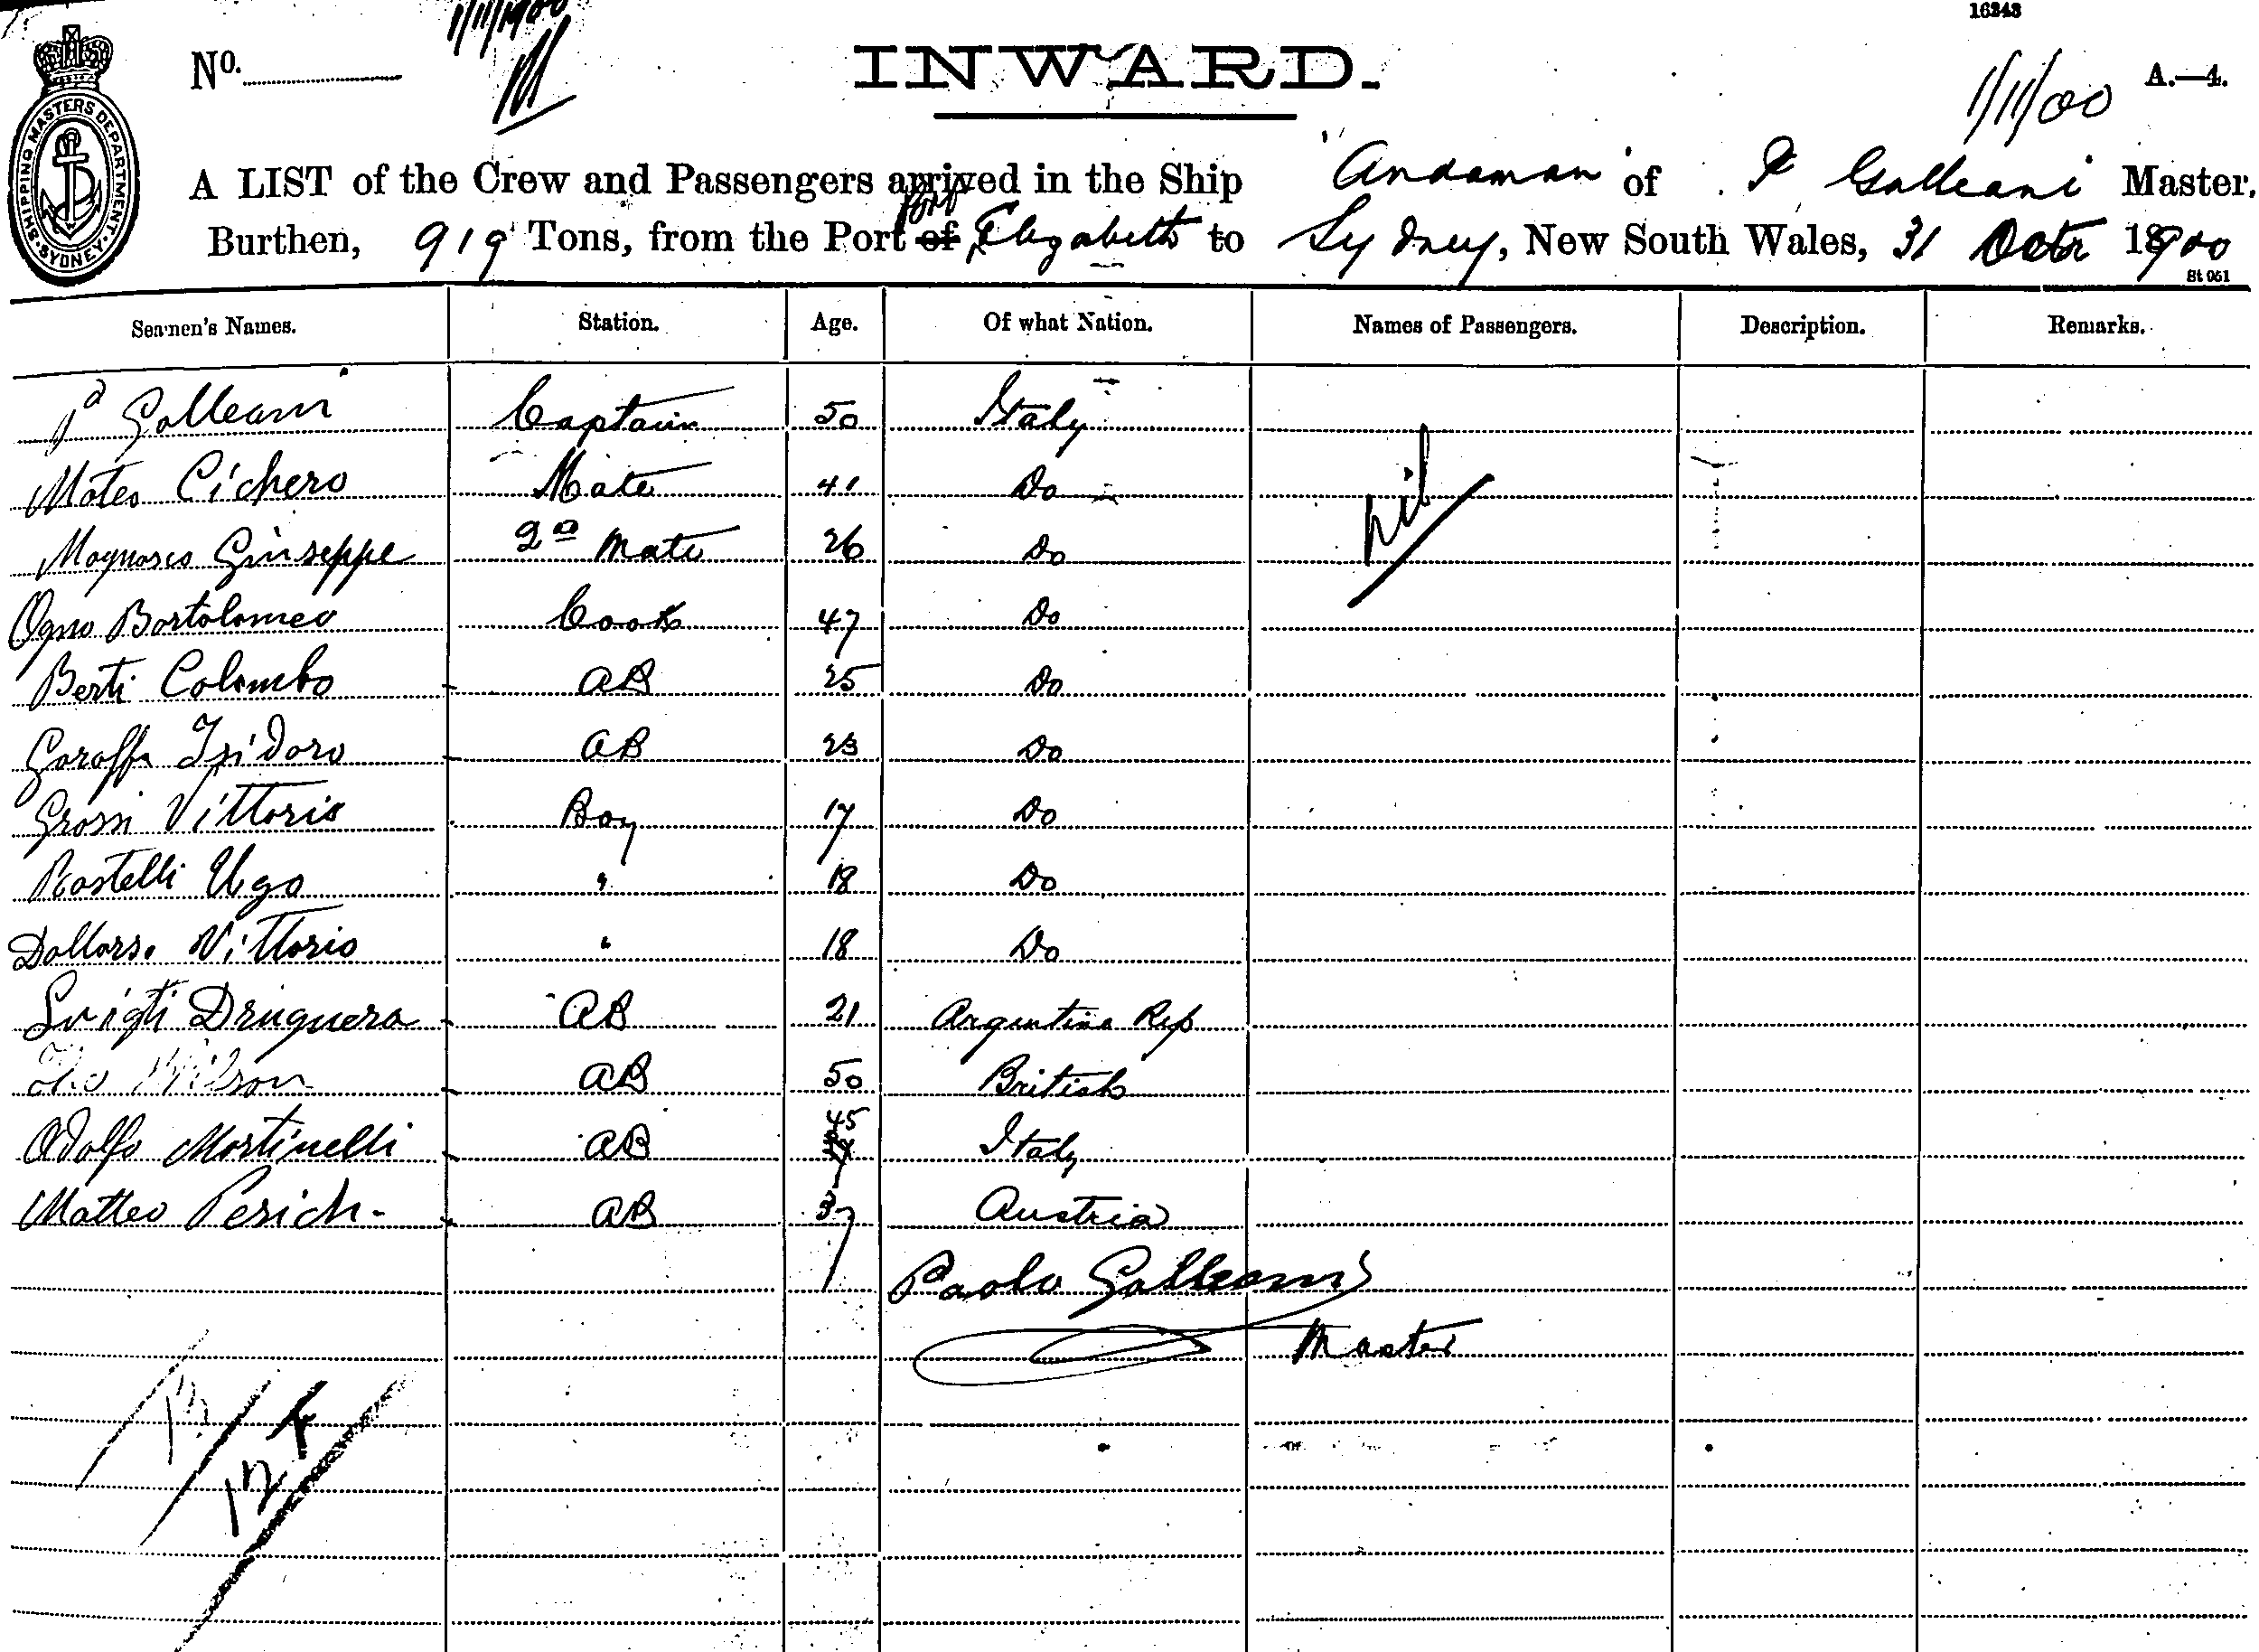 16243
1/11/1900
No.
INWARD.
1/11/00
A.—4.
SHIPPING MASTERS DEPARTMENT. SYDNEY.
A LIST of the Crew and Passengers arrived in the Ship "Andaman" of P Galleani Master.
Burthen, 919 Tons, from the Port of Port Elizabeth to Sydney, New South Wales, 31 Octr 1900
St 051
Seamen's Names. Station. Age. Of what Nation. Names of Passengers. Description. Remarks.
Pa Galleani Captain 50 Italy
Mateo Cichero Mate 41 Do
nil
Magnasco Giuseppe 2nd Mate 26 Do
Ogno Bartolomeo Cook 47 Do
Berti Colombo AB 25 Do
Garaffa Isidoro AB 23 Do
Grossi Vittorio Boy 17 Do
Rastelli Ugo " 18 Do
Dallorso Vittorio " 18 Do
Luigi Druguera AB 21 Argentine Rep
Wilson AB 50 British
Adolfo Martinelli AB 45 Italy
Matteo Perich - AB 37 Austria
Paolo Galleani
Master
13
13